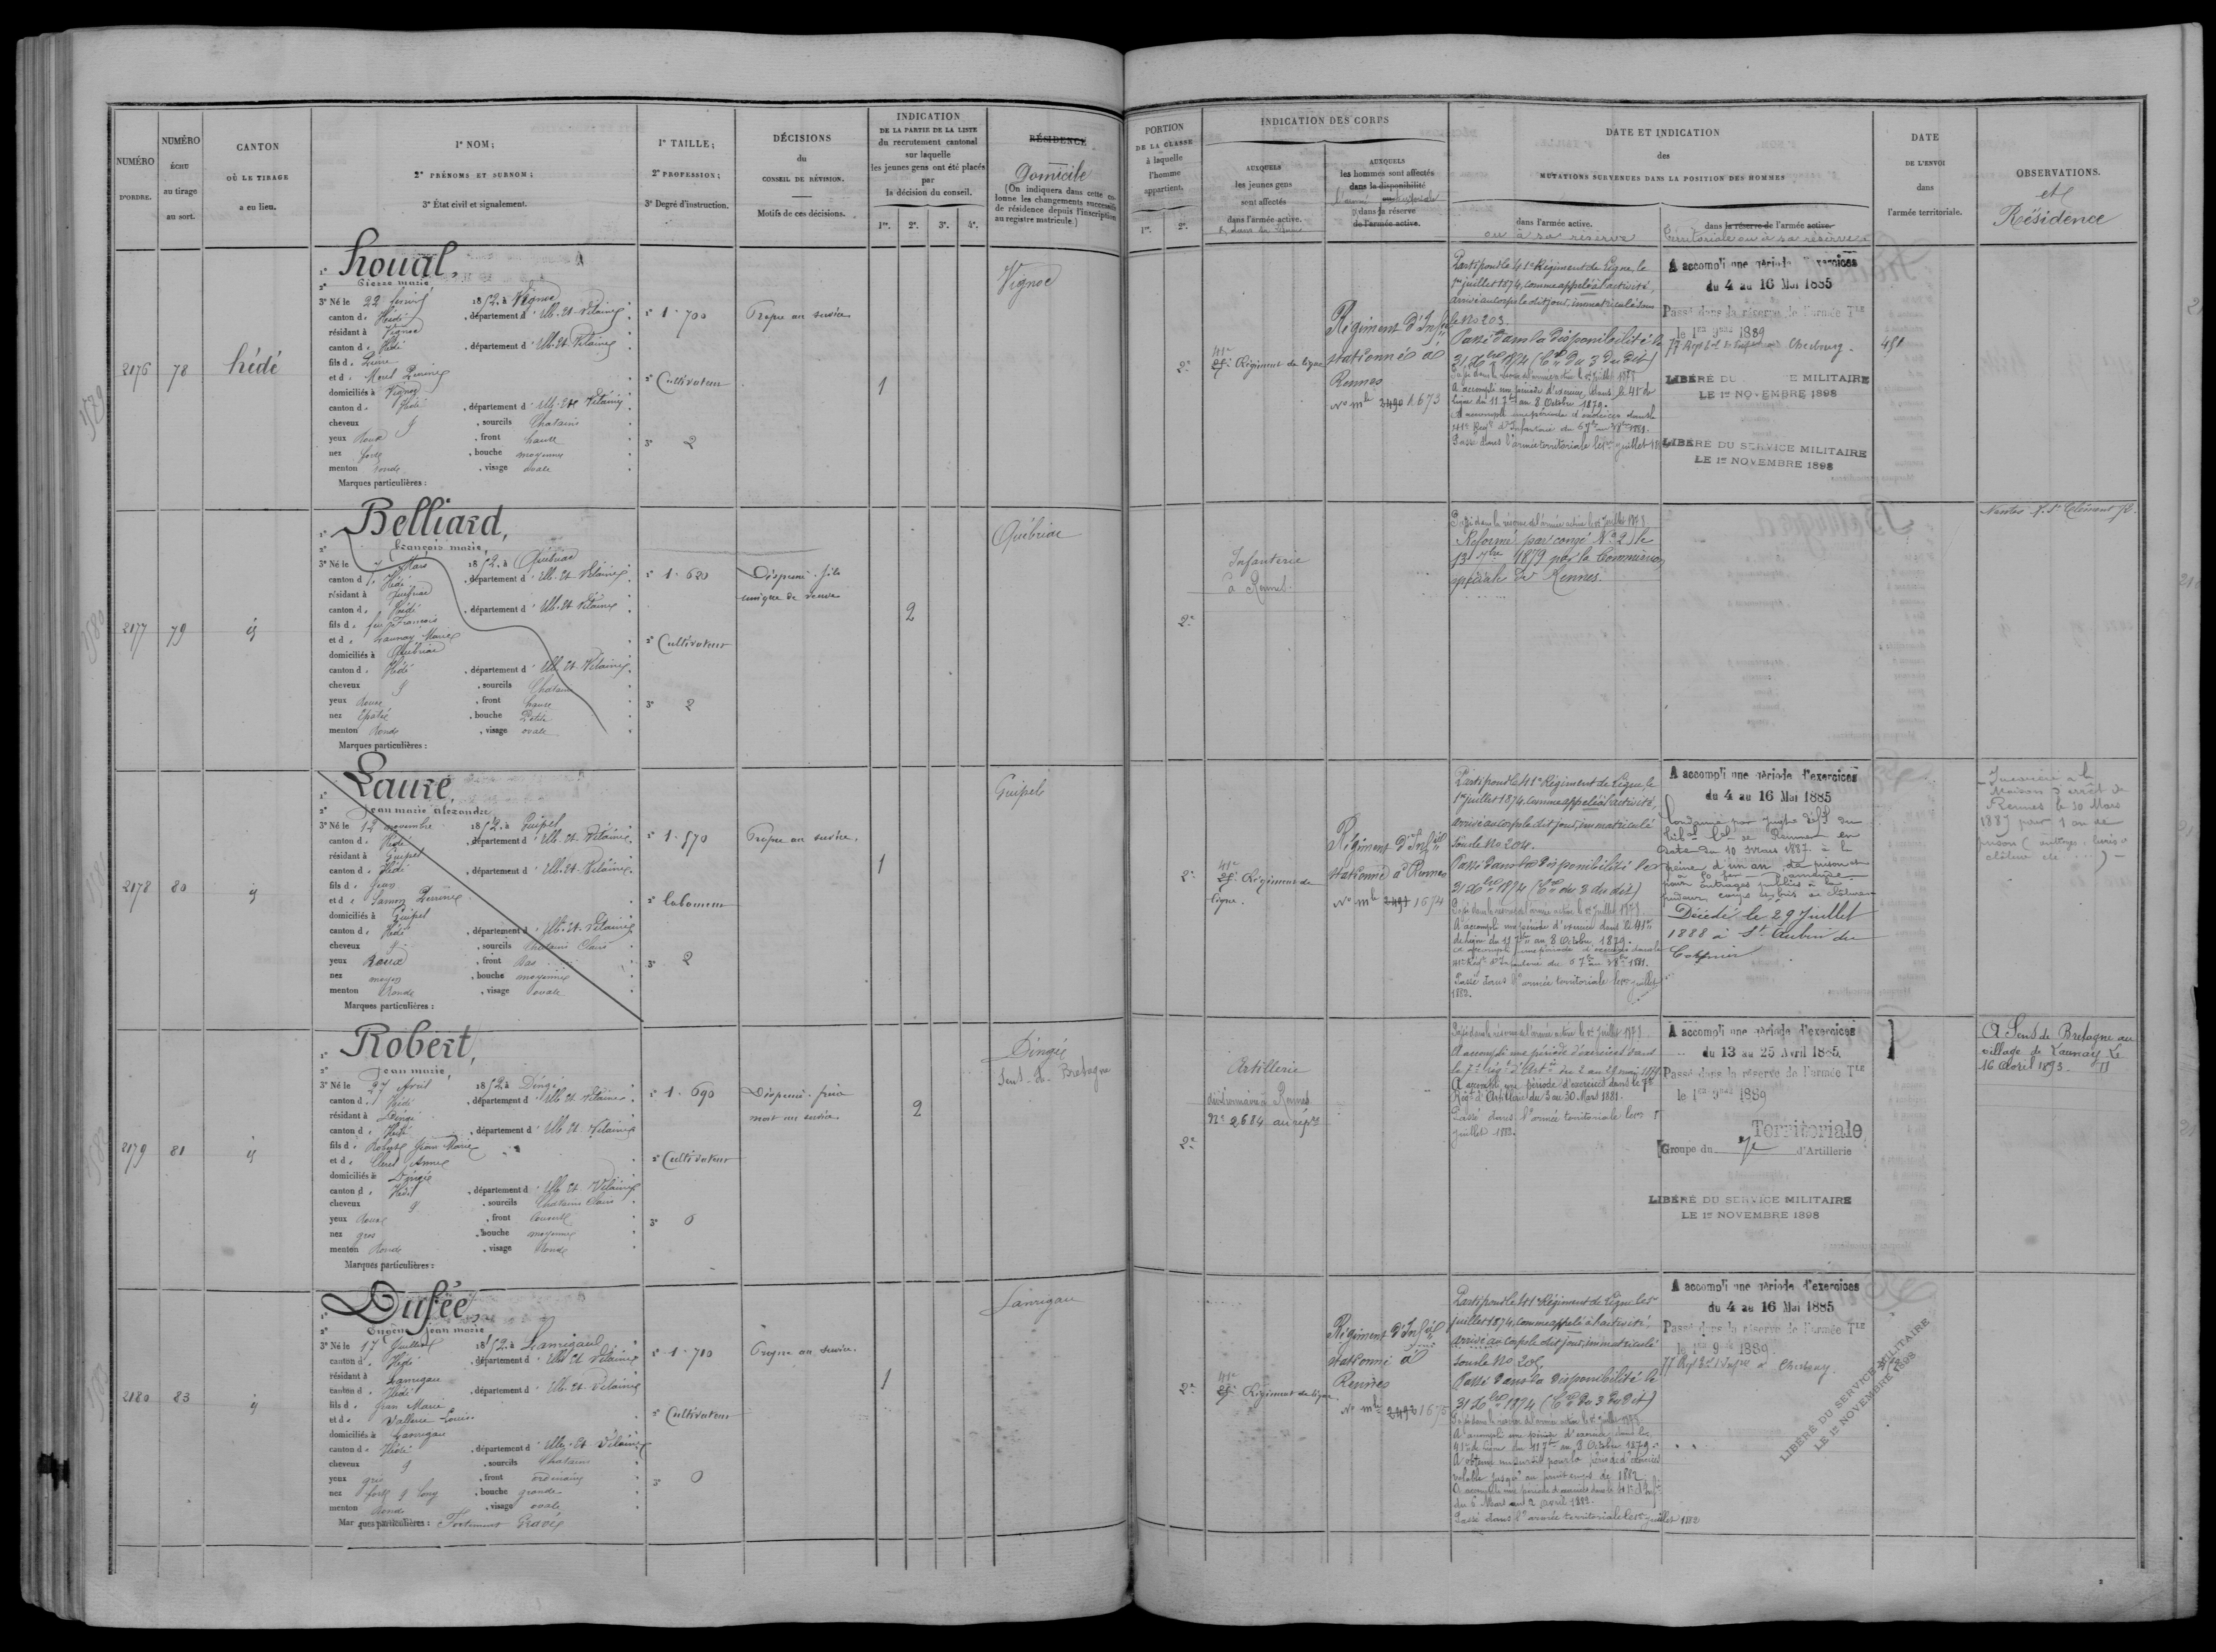 NUMÉRO
D'ORDRE.
NUMÉRO
échu
au tirage
au sort.
CANTON
OÙ LE TIRAGE
a eu lieu.
1° NOM;
2° PRÉNOMS ET SURNOM;
3° État civil et signalement.
1° TAILLE;
2° PROFESSION;
3° Degré d'instruction.
DÉCISIONS
du
CONSEIL DE RÉVISION.
Motifs de ces décisions.
INDICATION
DE LA PARTIE DE LA LISTE
du recrutement cantonal
sur laquelle
les jeunes gens ont été placés
par
la décision du conseil.
1re. 2e. 3e. 4e.
RÉSIDENCE
Domicile
(On indiquera dans cette co-
lonne les changements successifs
de résidence depuis l'inscription
au registre matricule.)
PORTION
DE LA CLASSE
à laquelle
l'homme
appartient.
1re. 2e.
INDICATION DES CORPS
AUXQUELS
les jeunes gens
sont affectés
dans l'armée active.
AUXQUELS
les hommes sont affectés
dans la disponibilité
dans la réserve
de l'armée active.
DATE ET INDICATION
des
MUTATIONS SURVENUES DANS LA POSITION DES HOMMES
dans l'armée active.
ou à sa réserve
dans la réserve de l'armée active.
Territoriale ou à sa réserve
DATE
DE L'ENVOI
dans
l'armée territoriale.
OBSERVATIONS.
et
Résidence
2176
78
hédé
1° houal,
2° Pierre marie
3° Né le 22 1852 à Vignoc
canton d. Hédé, département d'Ille-et-Vilaine
résidant à Vignoc
canton d. Hédé, département d'Ille-et-Vilaine
fils d. Pierre
et d. Morel Perrine
domiciliés à Vignoc
canton d. Hédé, département d'Ille-et-Vilaine
cheveux, sourcils Chatains
yeux Roux, front haut
nez fort, bouche moyenne
menton rond, visage ovale
Marques particulières :
1° 1.700
2° Cultivateur
3° 2
Propre au service
1
Vignoc
2e
41e
Régiment de ligne
Régiment d'Infie
stationné à
Rennes
No mle 2490 1673
Parti pour le 41e Régiment de Ligne, le
1er juillet 1874, comme appelé à l'activité,
arrivé au corps le dit jour, immatriculé sous
le No 203.
Passé dans la disponibilité le
31 Xbre 1874 (Con du 3 du dit)
Passé dans la réserve de l'armée active le 1er juillet 1878
A accompli une période d'exercice dans le 41e de
ligne du 11 7bre au 8 Octobre 1879.
A accompli une période d'exercices dans le
41e Regt d'Infanterie du
Passé dans l'armée territoriale le 1er juillet
A accompli une période d'exercices
du 4 au 16 Mai 1885
Passé dans la réserve de l'armée Tle
le 1er 9bre 1889
77 Regt Cherbourg.
LIBÉRÉ DU E MILITAIRE
LE 1er NOVEMBRE 1898
LIBÉRÉ DU SERVICE MILITAIRE
LE 1er NOVEMBRE 1898
2177
79
id
1° Belliard,
2° françois marie,
3° Né le 7 Mars 1852 à Québriac
canton d. Hédé, département d'Ille-et-Vilaine
résidant à Québriac
canton d. Hédé, département d'Ille-et-Vilaine
fils d. feu François
et d. Launay Marie
domiciliés à Québriac
canton d. Hédé, département d'Ille-et-Vilaine
cheveux, sourcils Chatains
yeux Roux, front haut
nez Epaté, bouche Petite
menton Rond, visage ovale
Marques particulières :
1° 1.620
2° Cultivateur
3° 2
Dispensé. fils
unique de veuve
2
Québriac
2e
Infanterie
à Rennes.
Passé dans la réserve de l'armée active le 1er juillet 1878
Réformé par congé No 2 le
13 7bre 1879 par la Commission
spéciale de Rennes.
2178
80
id
1° Lauré,
2° Jean marie alexandre
3° Né le 12 novembre 1852 à Guipel
canton d. Hédé, département d'Ille-et-Vilaine
résidant à Guipel
canton d. Hédé, département d'Ille-et-Vilaine
fils d. Jean
et d. Samson Perrine
domiciliés à Guipel
canton d. Hédé, département d'Ille-et-Vilaine
cheveux, sourcils Chatains Clairs
yeux Roux, front Bas
nez moyen, bouche moyenne
menton Rond, visage ovale
Marques particulières :
1° 1.570
2° laboureur
3° 2
Propre au service.
1
Guipel
2e
41e
Régiment de
ligne.
Régiment d'Infie
stationné à Rennes
No mle 2491 1674
Parti pour le 41e Régiment de Ligne, le
1er juillet 1874, comme appelé à l'activité,
arrivé au corps le dit jour, immatriculé
sous le No 204.
Passé dans la disponibilité le
31 Xbre 1874 (Con du 3 du dit)
Passé dans la réserve de l'armée active le 1er juillet 1878
A accompli une période d'exercice dans le 41e
de ligne du 11 7bre au 8 Octobre 1879.
A accompli une période d'exercices dans le
41e Regt d'Infanterie du 1881.
Passé dans l'armée territoriale le 1er juillet
1882.
A accompli une période d'exercices
du 4 au 16 Mai 1885
Condamné par jugt du
de Rennes en
date du 10 Mars 1887 à la
peine d'un an de prison et
d'amende
pour outrages publics à la
pudeur, coups
Décédé le 29 Juillet
1888 à St Aubin du
Cormier
Incarcéré à la
Maison d'arrêt de
Rennes le 10 Mars
1887 pour 1 an de
prison (outrages
2179
81
id
1° Robert,
2° Jean marie,
3° Né le 27 Avril 1852 à Dingé
canton d. Hédé, département d'Ille-et-Vilaine
résidant à Dingé
canton d. Hédé, département d'Ille-et-Vilaine
fils d. Robert Jean Marie
et d. Anne
domiciliés à Dingé
canton d. Hédé, département d'Ille-et-Vilaine
cheveux, sourcils Chatains Clairs
yeux Roux, front Couvert
nez gros, bouche moyenne
menton Rond, visage Rond
Marques particulières :
1° 1.690
2° Cultivateur
3° 0
Dispensé. frère
mort au service.
2
Dingé
Sens-de-Bretagne
2e
Artillerie
divisionnaire à Rennes
No 2684 au répre
Passé dans la réserve de l'armée active le 1er juillet 1878
A accompli une période d'exercices dans
le 7e Régt d'Artie du 2 au 29 mai 1879
A accompli une période d'exercices dans le 7e
Régt d'Artillerie du 3 au 30 Mars 1881.
Passé dans l'armée territoriale le 1er
juillet 1882.
A accompli une période d'exercices
du 13 au 25 Avril 1885.
Passé dans la réserve de l'armée Tle
le 1er 9bre 1889
Territoriale
Groupe du 7e d'Artillerie
LIBÉRÉ DU SERVICE MILITAIRE
LE 1er NOVEMBRE 1898
A Sens de Bretagne au
village de Launay le
16 Avril 1893.
2180
83
id
1° Dufée,
2° Eugène Jean marie
3° Né le 17 Juillet 1852 à Lanrigan
canton d. Hédé, département d'Ille-et-Vilaine
résidant à Lanrigan
canton d. Hédé, département d'Ille-et-Vilaine
fils d. Jean Marie
et d. Vallerie Louise
domiciliés à Lanrigan
canton d. Hédé, département d'Ille-et-Vilaine
cheveux, sourcils Chatains
yeux gris, front ordinaire
nez fort & long, bouche grande
menton Rond, visage ovale
Marques particulières : Fortement Gravé
1° 1.710
2° Cultivateur
3° 0
Propre au service.
1
Lanrigan
2e
41e
Régiment de ligne.
Régiment d'Infie
stationné à
Rennes
No mle 2492 1675
Parti pour le 41e Régiment de Ligne le 1er
juillet 1874, comme appelé à l'activité,
arrivé au corps le dit jour, immatriculé
sous le No 205.
Passé dans la disponibilité le
31 Xbre 1874 (Con du 3 du dit)
Passé dans la réserve de l'armée active le 1er juillet 1878
A accompli une période d'exercice dans le
41e de ligne du 11 7bre au 8 Octobre 1879.
A obtenu un sursis pour la période d'exercices
valable jusqu'au printemps de 1882.
A accompli une période d'exercices dans le 41e d'Infie
du 6 Mars au 2 avril 1882.
Passé dans l'armée territoriale le 1er juillet 1882
A accompli une période d'exercices
du 4 au 16 Mai 1885
Passé dans la réserve de l'armée Tle
le 1er 9bre 1889
77 Regt à Cherbourg.
LIBÉRÉ DU SERVICE MILITAIRE
LE 1er NOVEMBRE 1898